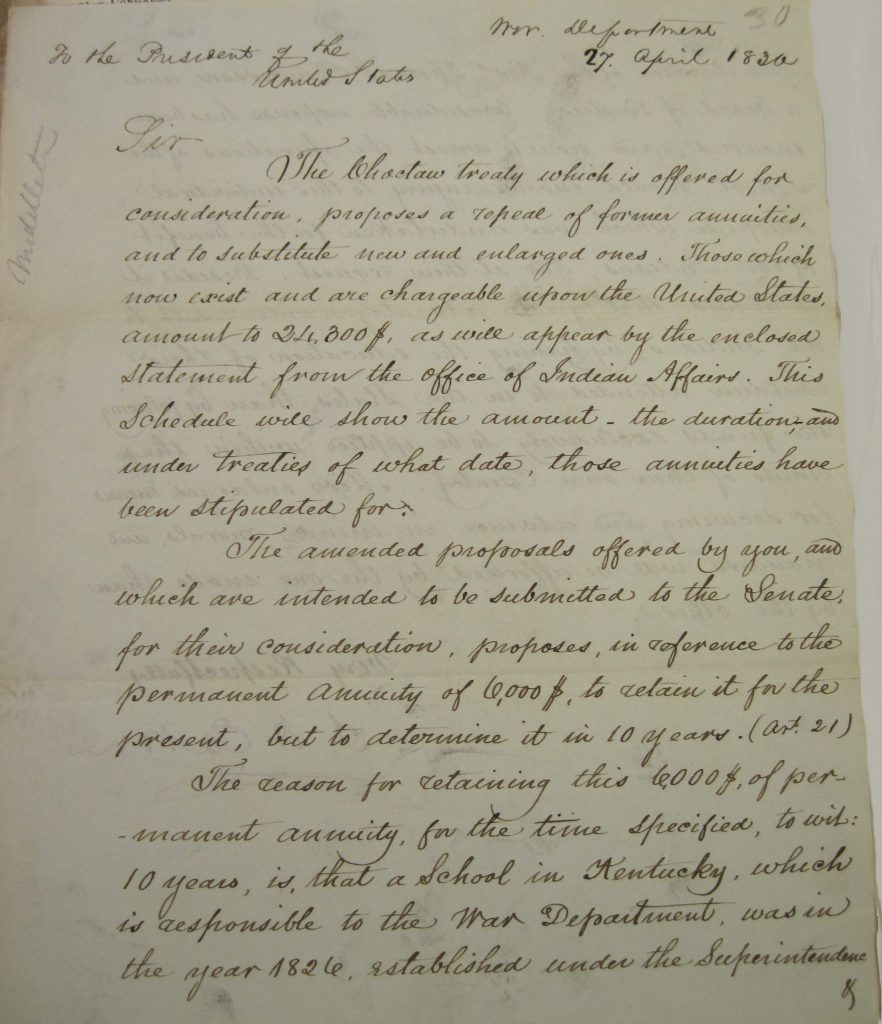 30
War Department
27. April 1830
To the President of the
United States
Sir
The Choctaw treaty which is offered for
consideration, proposes a repeal of former annuities,
and to substitute new and enlarged ones. Those which
now exist and are chargeable upon the United States,
amount to 24,300$, as will appear by the enclosed
statement from the office of Indian Affairs. This
Schedule will show the amount - the duration, - and
under treaties of what date, those annuities have
been stipulated for.
The amended proposals offered by you, and
which are intended to be submitted to the Senate,
for their consideration, proposes, in reference to the
permanent annuity of 6,000$, to retain it for the
present, but to determine it in 10 years. (Art. 21)
The reason for retaining this 6,000$, of per-
-manent annuity, for the time specified, to wit:
10 years, is, that a School in Kentucky, which
is responsible to the War Department, was in
the year 1826, established under the Superintendence